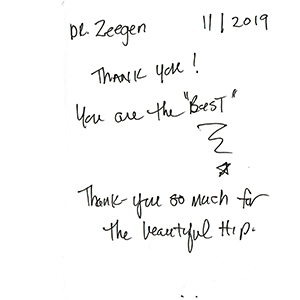 DR. Zeegen 11/2019
THANK YOU!
You are the "BEST"
Thank-you so much for
the beautiful Hip.